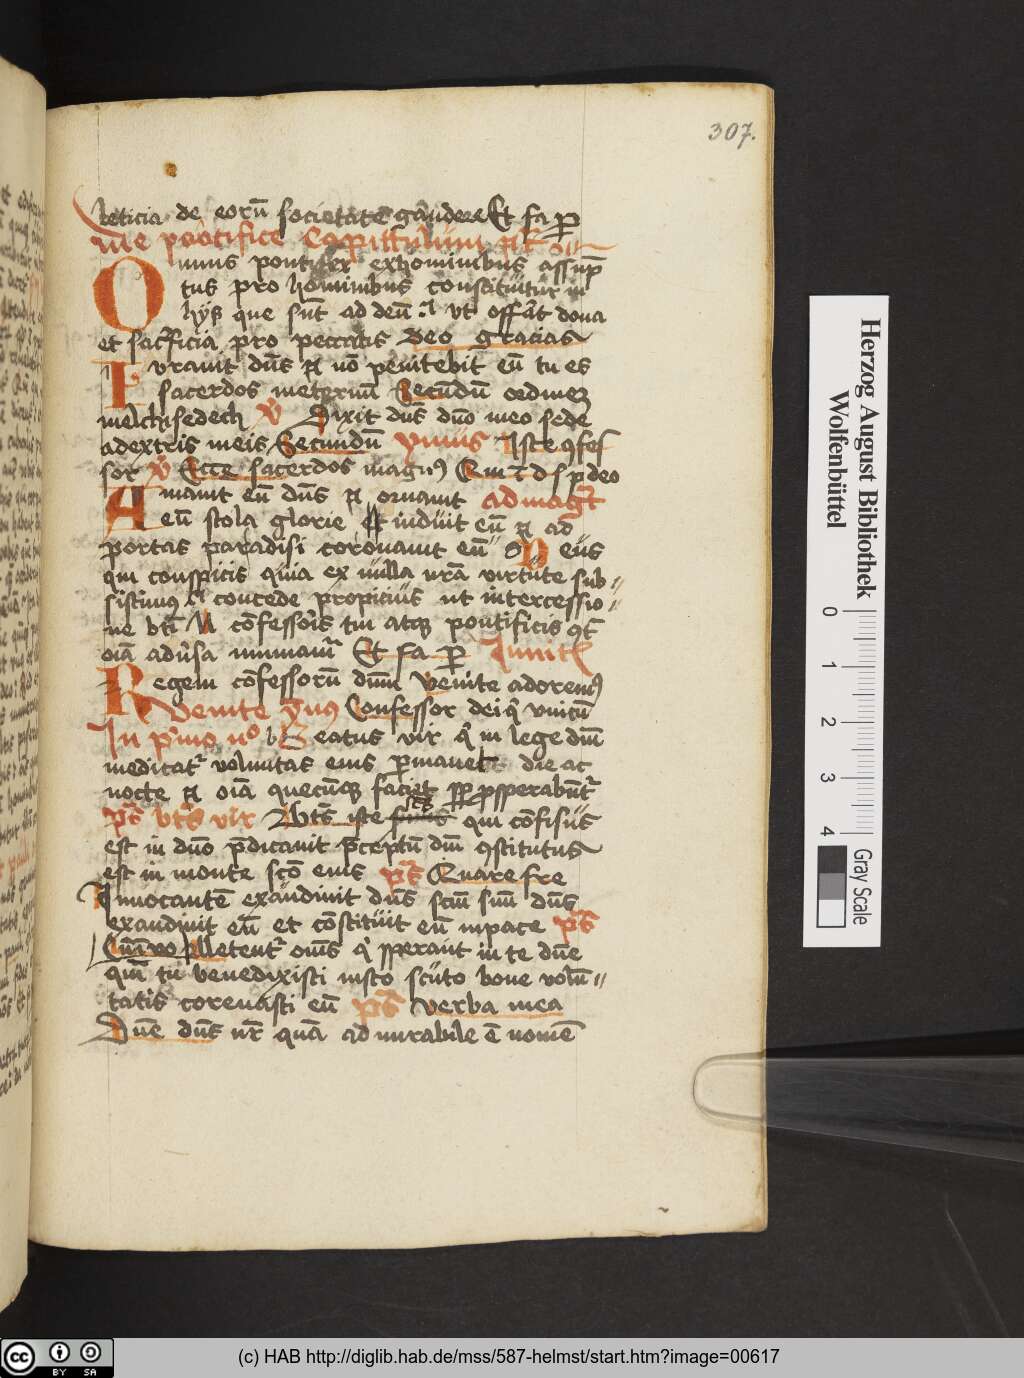 307.
leticia de eorū societate gaudere Et fa ꝑ
me pontifice Capittulum
mnis pontifex ex hominibus assūp
tus pro hominibus constituitur in
hijs que sūt ad deū ut offāt dona
et sac̄ficia pro peccatis deo gracias
I uravit dn̄s ⁊ nō penitebit eū tu es
sacerdos meternū Secundū ordinez
melchisedech ℣ Dixit dn̄s dn̄o meo sede
adextris meis Secundū ymnus Iste ꝯfes
sor ℣ Ecce sacerdos magnꝰ Qui
A mavit eū dn̄s ⁊ ornavit ad maḡt
eū stola glorie Et induit eū ⁊ ad
portas paradisi coronavit eū D eus
qui conspicis quia ex nulla nr̄a virtute sub〃
sistimꝰ concede propicius ut intercessio〃
ne bti N cōfessoris tui atqꝫ pontificis
oīa adūsa muniamur Et fa ꝑ Invit
R egem cōfessorū dnm Venite adoremꝰ
Venite Confessor dei
In pͥmo nº B Eatus vir qͥ in lege dnī
meditatr voluntas eius ꝑmanet die ac
nocte ⁊ oīa quecūqꝫ faciet ꝓsperabūtr
ps̄ bt̄s vir Bt̄s iste sc̄s qui cōfisus
est in dn̄o p̄dicavit p̄ceptū dnī ꝯstitutus
est in monte sc̄o eius ps̄ Quare fre
Invocantē exaudivit dn̄s scm̄ suū dn̄s
exaudivit eū et cōstituit eū inpace ps̄
Cum Letentr om̄s qͥ sperant in te dn̄e
qm̄ tu benedixisti iusto scuto bone volū〃
tatis coronasti eū ps̄ Verba mea
Dn̄e dn̄s nr̄ quā admirabile ē nomē
Herzog August Bibliothek
Wolfenbüttel
0 1 2 3 4
Gray Scale
cc BY SA
(c) HAB http://diglib.hab.de/mss/587-helmst/start.htm?image=00617